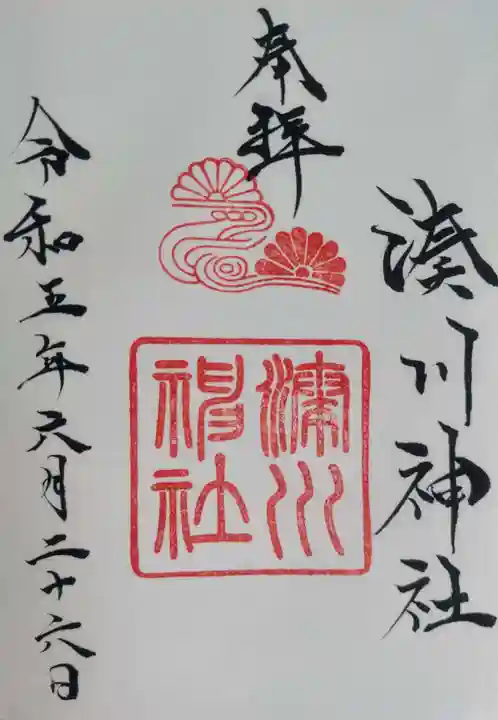 奉拝
湊川神社
湊川神社
令和五年六月二十六日